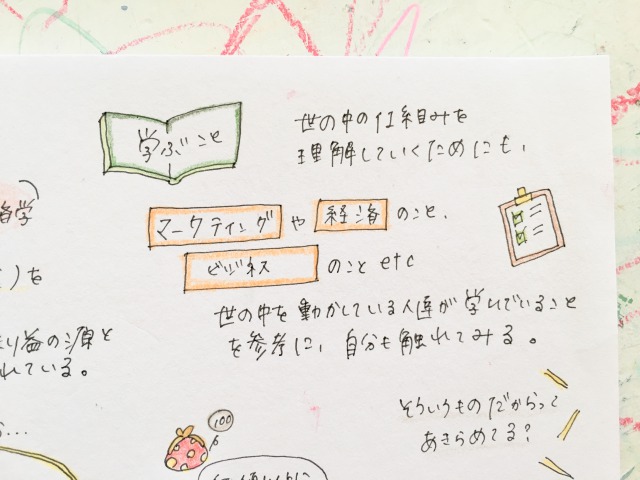 学ぶこと
世の中の仕組みを
理解していくためにも、
マーケティング や 経済 のこと、
ビジネス のこと etc
世の中を動かしている人達が学んでいること
を参考に、自分も触れてみる。
学
)を
益の源と
れている。
...
100
そういうものだからって
あきらめてる?